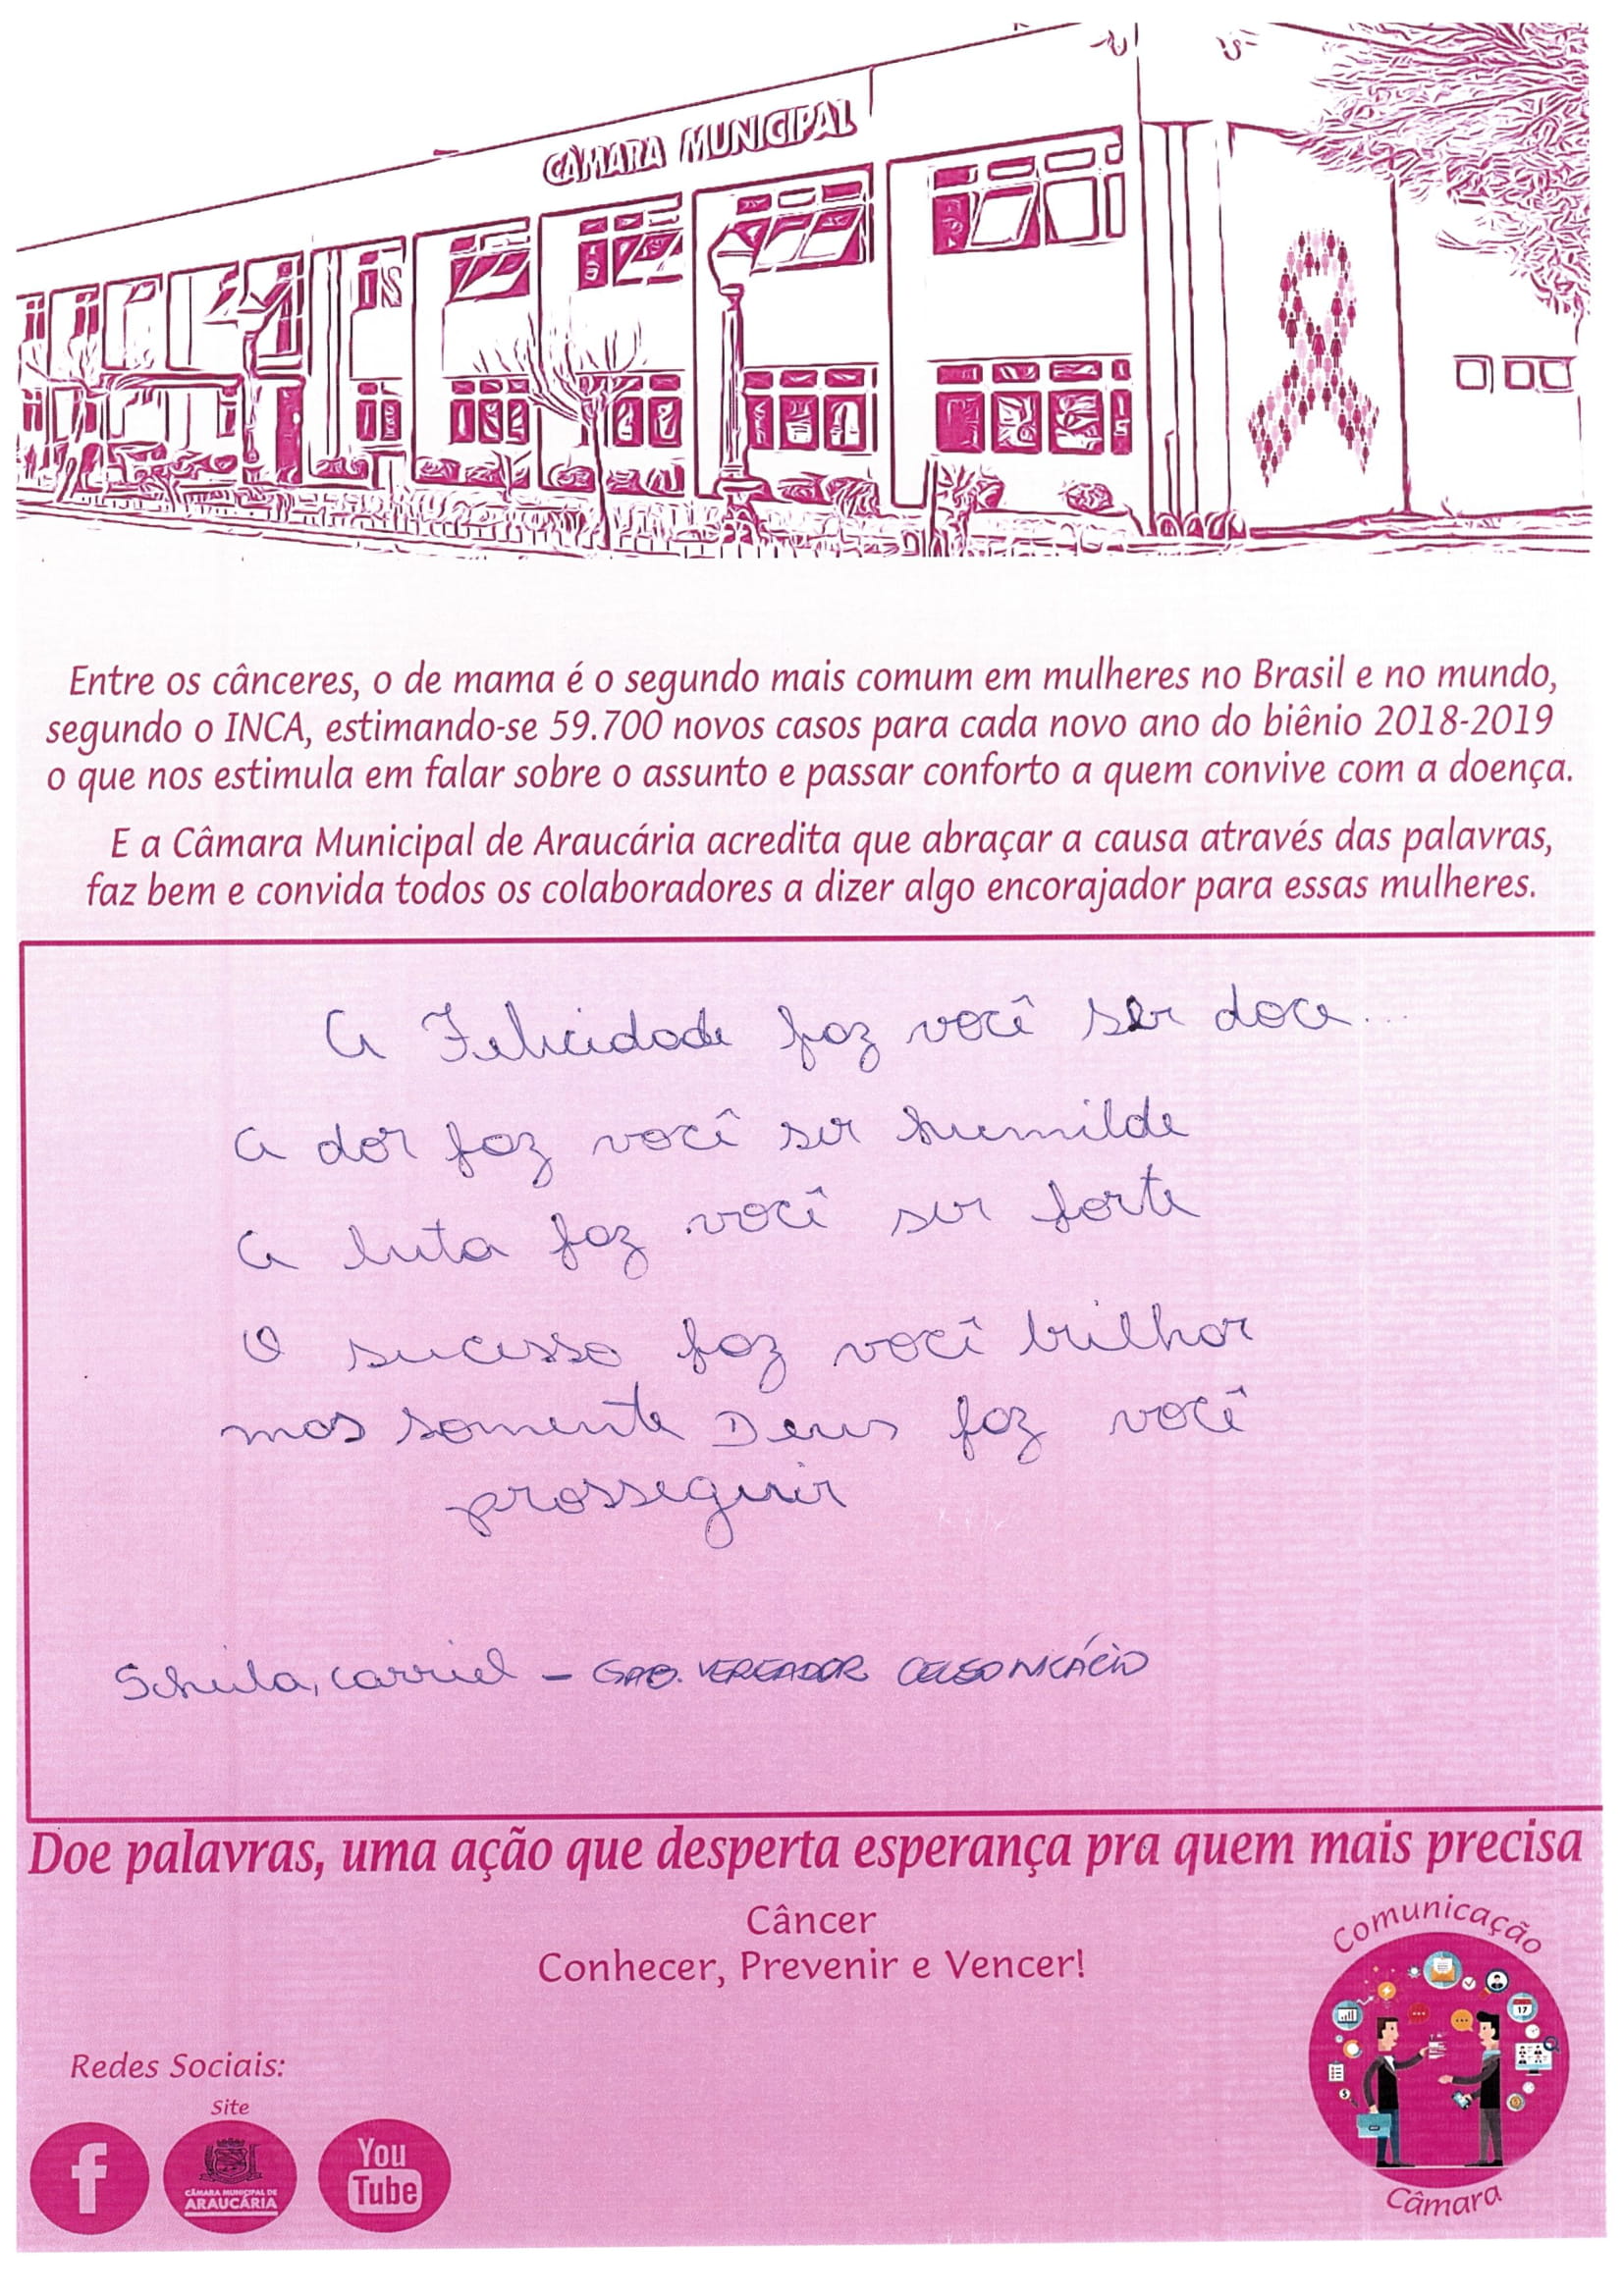 CÂMARA MUNICIPAL
Entre os cânceres, o de mama é o segundo mais comum em mulheres no Brasil e no mundo,
segundo o INCA, estimando-se 59.700 novos casos para cada novo ano do biênio 2018-2019
o que nos estimula em falar sobre o assunto e passar conforto a quem convive com a doença.
E a Câmara Municipal de Araucária acredita que abraçar a causa através das palavras,
faz bem e convida todos os colaboradores a dizer algo encorajador para essas mulheres.
A Felicidade faz você ser doce...
A dor faz você ser humilde
A luta faz você ser forte
O sucesso faz você brilhar
mas somente Deus faz você
prosseguir
Scheila, Carriel - GAB. VEREADOR CELSO NICÁCIO
Doe palavras, uma ação que desperta esperança pra quem mais precisa
Câncer
Conhecer, Prevenir e Vencer!
Comunicação
17
Câmara
Redes Sociais:
Site
f
CÂMARA MUNICIPAL DE
ARAUCÁRIA
You
Tube